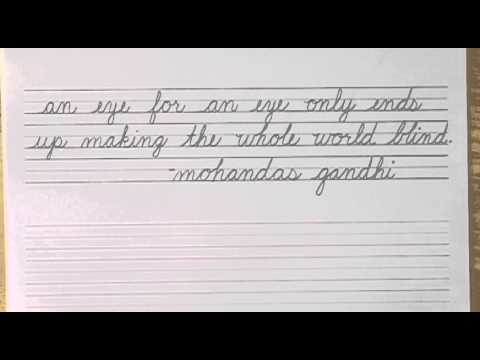 an eye for an eye only ends
up making the whole world blind.
-mohandas gandhi